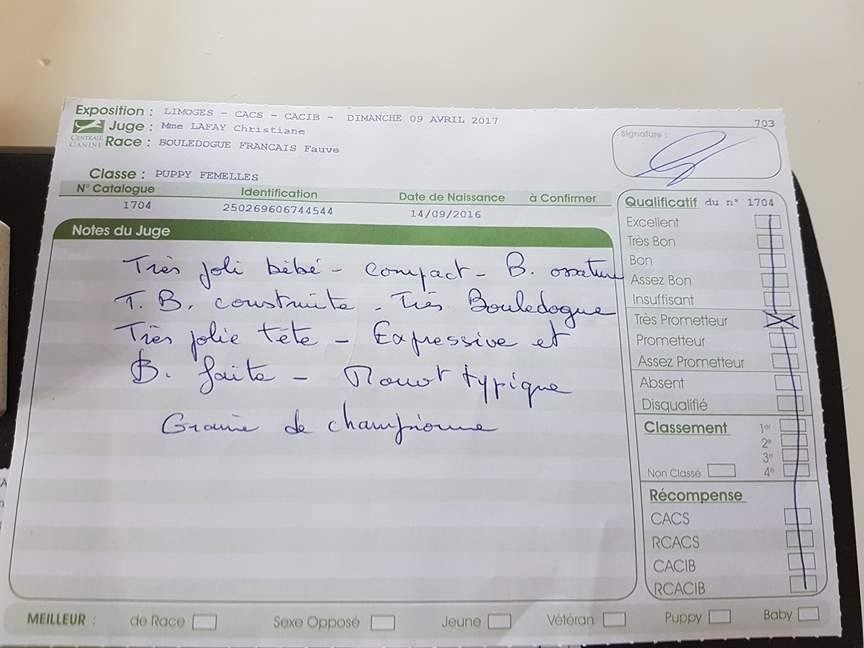 Exposition : LIMOGES - CACS - CACIB - DIMANCHE 09 AVRIL 2017
703
Juge : Mme LAFAY Christiane
CENTRALE CANINE
Race : BOULEDOGUE FRANCAIS Fauve
Signature :
Classe : PUPPY FEMELLES
N° Catalogue Identification Date de Naissance à Confirmer
1704 250269606744544 14/09/2016
Notes du Juge
Très joli bébé - compact - B. ossature
T. B. construite - Très Bouledogue
Très jolie tête - Expressive et
B. faite - typique
Graine de championne
Qualificatif du n° 1704
Excellent
Très Bon
Bon
Assez Bon
Insuffisant
Très Prometteur
Prometteur
Assez Prometteur
Absent
Disqualifié
Classement 1er
2e
3e
Non Classé 4e
Récompense
CACS
RCACS
CACIB
RCACIB
MEILLEUR : de Race Sexe Opposé Jeune Vétéran Puppy Baby